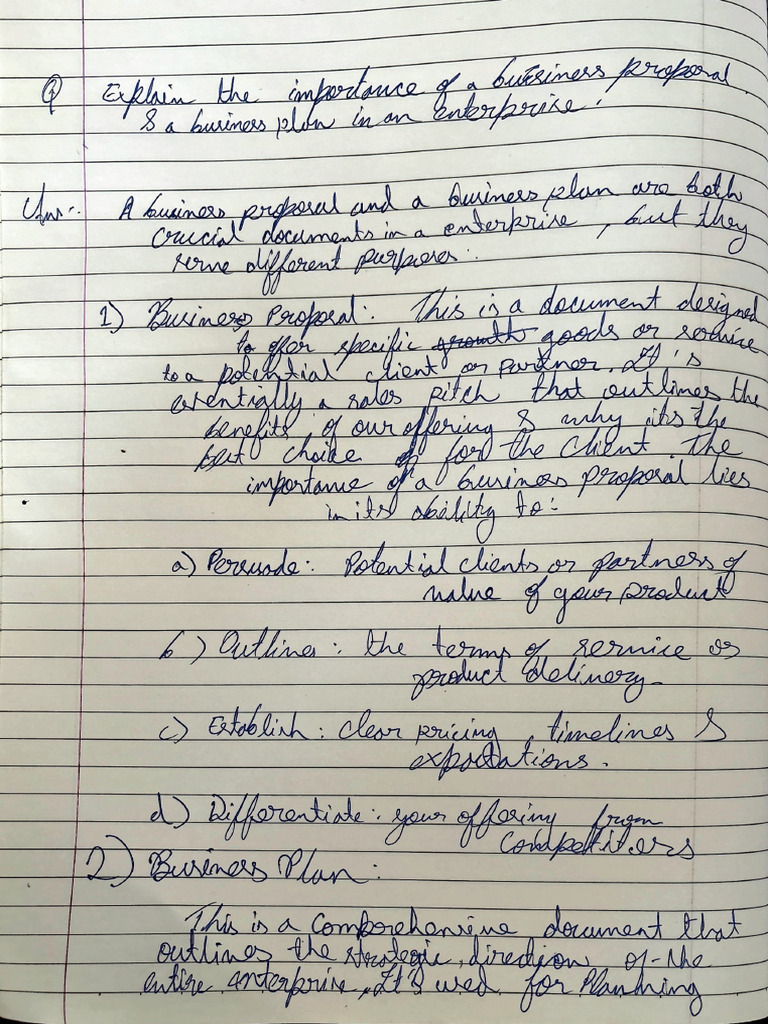 Q Explain the importance of a business proposal
& a business plan in an enterprise.
Ans:- A business proposal and a business plan are both
crucial documents in a enterprise, but they
serve different purposes:
1) Business Proposal:. This is a document designed
to offer specific growth goods or service
to a potential client or partner. It's
essentially a sales pitch that outlines the
benefits of our offering & why its the
best choice for the client. The
importance of a business proposal lies
in its ability to:
a) Persuade:. Potential clients or partners of
value of your product
b) Outlines: the terms of service or
product delivery.
c) Establish: clear pricing, timelines &
expectations.
d) Differentiate: your offering from
competiters
2) Business Plan:
This is a comprehensive document that
outlines the strategic direction of the
entire enterprise, It's used for Planning